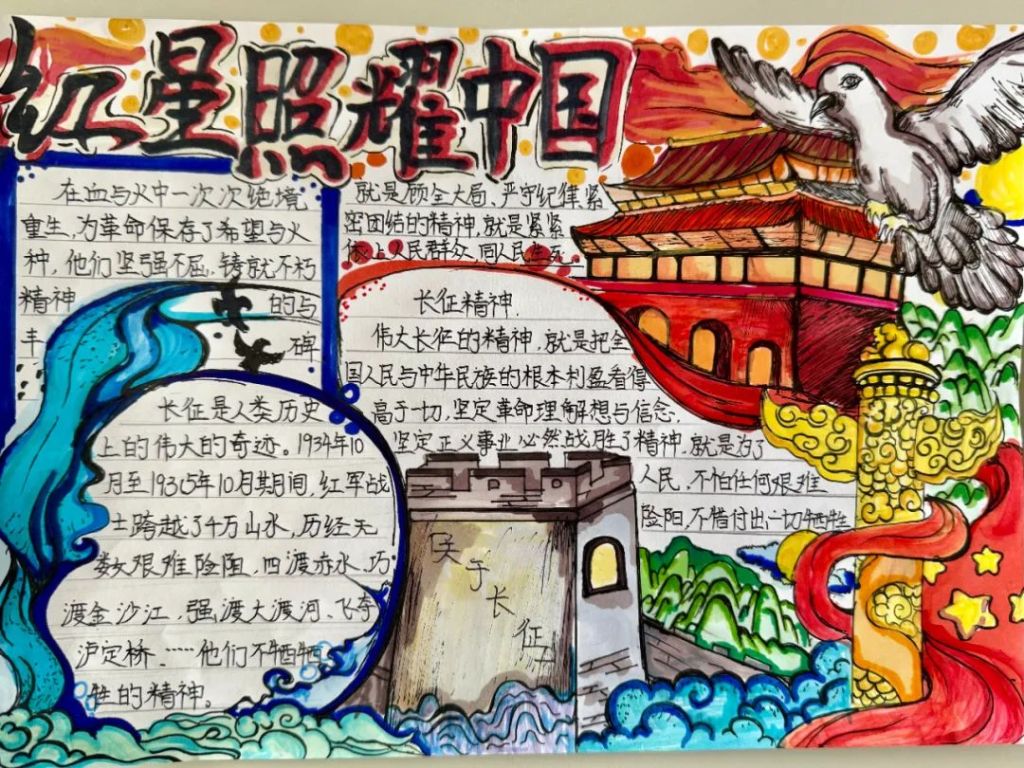 红星照耀中国
在血与火中一次次绝境
重生,为革命保存了希望与火
种,他们坚强不屈,铸就不朽
精神 的与
丰 碑
长征是人类历史
上的伟大的奇迹。1934年10
月至1936年10月其期间,红军战
士跨越了千万山水,历经无
数艰难险阻,四渡赤水,巧
渡金沙江,强渡大渡河,飞夺
泸定桥,……他们不牺牺
牲的精神。
就是顾全大局、严守纪律,紧
密团结的精神,就是紧紧
依上人民群众,同人民生死
长征精神.
伟大长征的精神,就是把全
国人民与中华民族的根本利益看得
高于一切,坚定革命理解想与信念,
坚定正义事业必然战胜了精神,就是为了
人民,不怕任何艰难
险阻,不惜付出一切牺牲
关于长征